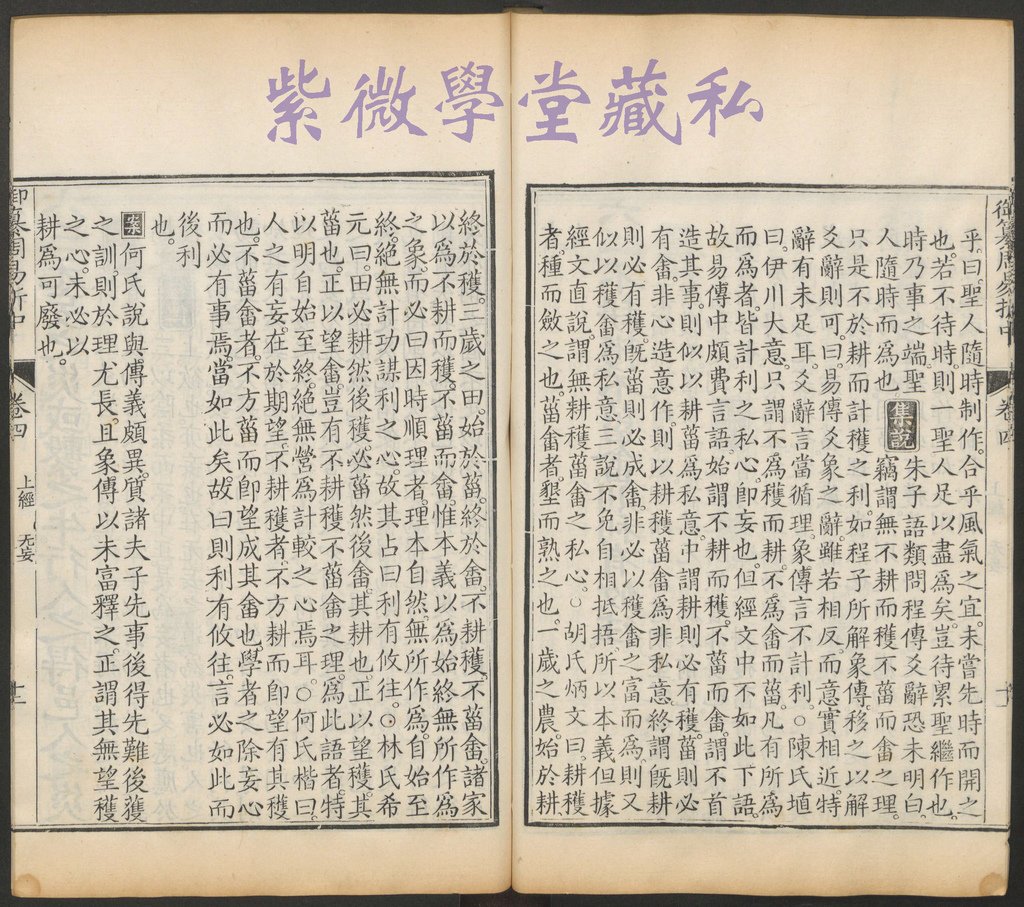 紫微學堂藏私
御纂周易折中 卷四
乎曰聖人隨時制作合乎風氣之宜未嘗先時而開之
也若不待時則一聖人足以盡爲矣豈待累聖繼作也
時乃事之端聖人隨時而爲也 集說 朱子語類問程傳爻辭恐未明白
竊謂無不耕而穫不菑而畬之理
只是不於耕而計穫之利如程子所解象傳移之以解
爻辭則可曰易傳爻象之辭雖若相反而意實相近特
辭有未足耳爻辭言當循理象傳言不計利○陳氏埴
曰伊川大意只謂不爲穫而耕不爲畬而菑凡有所爲
而爲者皆計利之私心卽妄也但經文中不如此下語
故易傳中頗費言語始謂不耕而穫不菑而畬謂不首
造其事則似以耕菑爲私意中謂耕則必有穫菑則必
有畬非心造意作則以耕穫菑畬爲非私意終謂旣耕
則必有穫旣菑則必成畬非必以穫畬之富而爲則又
似以穫畬爲私意三說不免自相抵捂所以本義但據
經文直說謂無耕穫菑畬之私心○胡氏炳文曰耕穫
者種而斂之也菑畬者墾而熟之也一歲之農始於耕
終於穫三歲之田始於菑終於畬不耕穫不菑畬諸家
以爲不耕而穫不菑而畬惟本義以爲始終無所作爲
之象而必曰因時順理者理本自然無所作爲自始至
終絕無計功謀利之心故其占曰利有攸往○林氏希
元曰田必耕然後穫必菑然後畬其耕也正以望穫其
菑也正以望畬豈有不耕穫不菑畬之理爲此語者特
以明自始至終絕無營爲計較之心焉耳○何氏楷曰
人之有妄在於期望不耕穫者不方耕而卽望有其穫
也不菑畬者不方菑而卽望成其畬也學者之除妄心
而必有事焉當如此矣故曰則利有攸往言必如此而
後利
也
案何氏說與傳義頗異質諸夫子先事後得先難後獲
之訓則於理尤長且象傳以未富釋之正謂其無望穫
之心未必以
耕爲可廢也
御纂周易折中 卷四 上經 无妄 十二